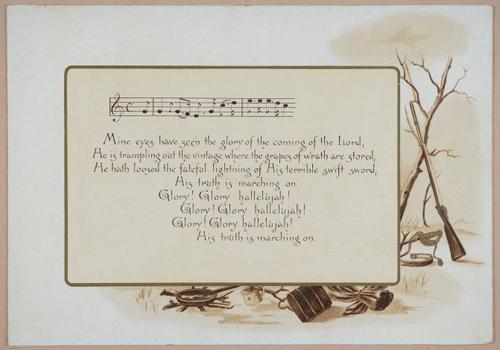 Mine eyes have seen the glory of the coming of the Lord,
He is trampling out the vintage where the grapes of wrath are stored,
He hath loosed the fateful lightning of His terrible swift sword,
His truth is marching on.
Glory! Glory hallelujah!
Glory! Glory hallelujah!
Glory! Glory hallelujah!
His truth is marching on.